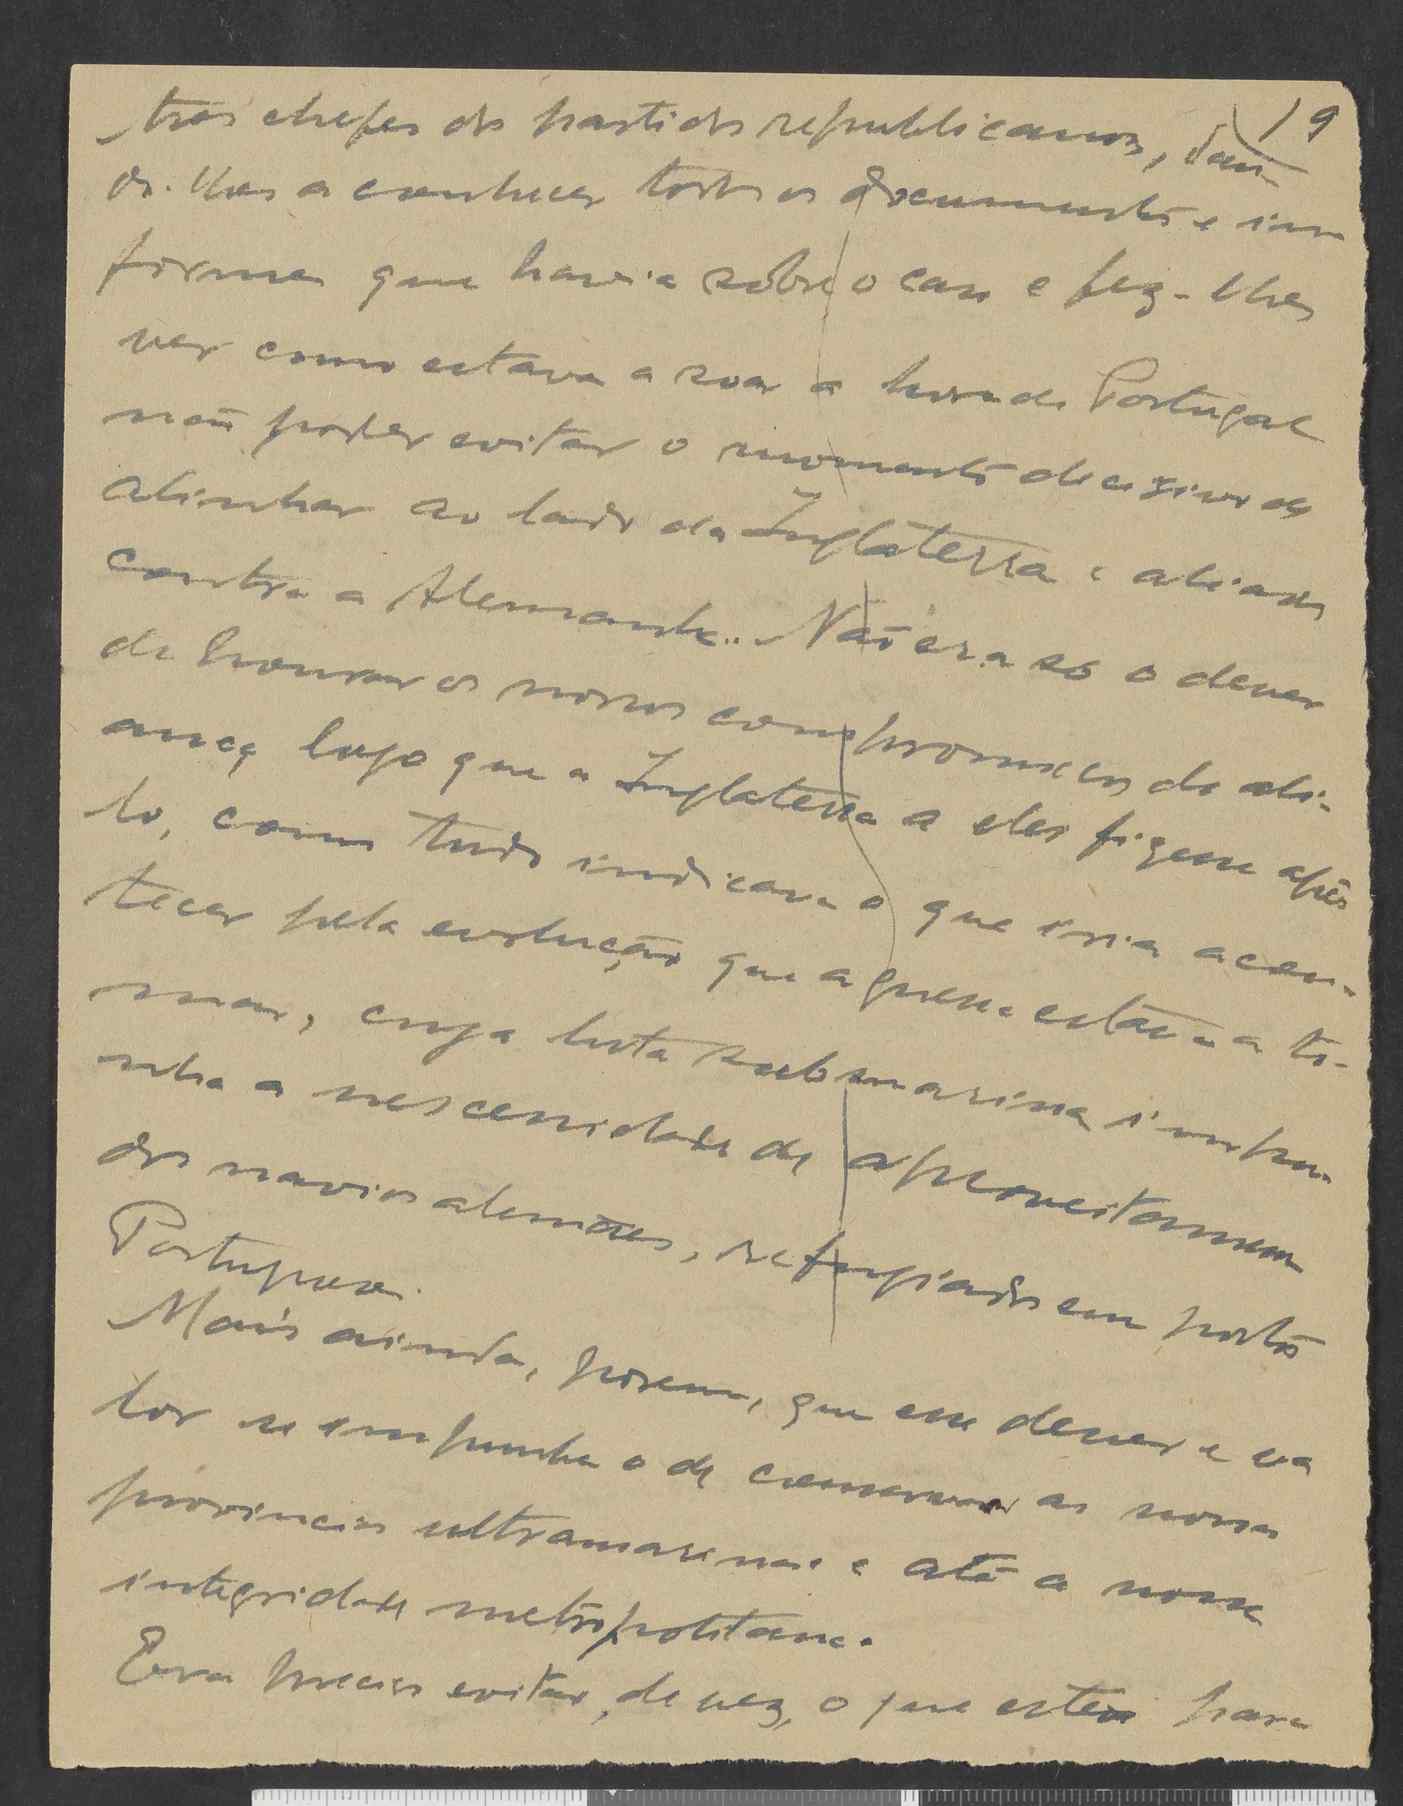 19
tres chefes dos partidos republicanos, dan-
do-lhes a conhecer todos os documentos e in
formes que havia sôbre o caso e fez-lhes
ver como estava a soar a hora de Portugal
não poder evitar o momento decisivo de
alinhar ao lado da Inglaterra e aliados
contra a Alemanha. Não era só o dever
de honrar os nossos compromissos de ali-
ança logo que a Inglaterra a eles fizesse apê-
lo, como tudo indicava o que iria acon-
tecer pela evolução que a guerra estava a to-
mar, cuja luta submarina impu-
nha a necessidade de aproveitamen
dos navios alemães, refugiados em portos
Portugueses.
Mais ainda, porem, que esse dever e va
lor se impunha o de conservar as nossas
provincias ultramarinas e até a nossa
integridade metropolitana.
Era preciso evitar, de vez, o que esteve para